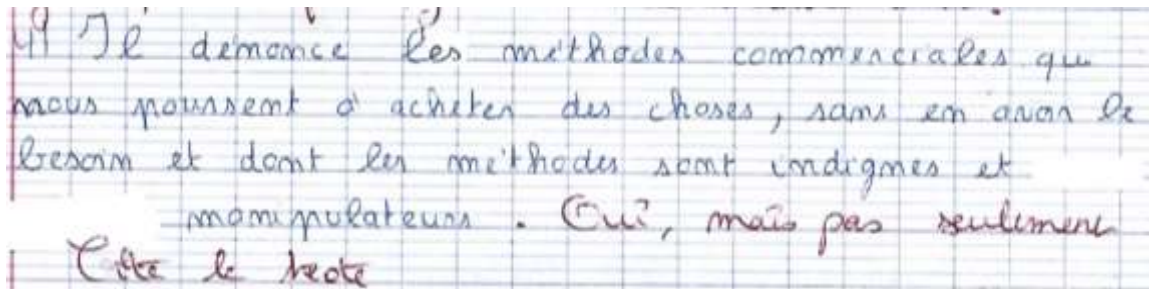 4) Il démonce les méthodes commerciales qui
nous poussent à acheter des choses, sans en avoir le
besoin et dont les méthodes sont indignes et
manipulateurs. Oui, mais pas seulement
Cite le texte